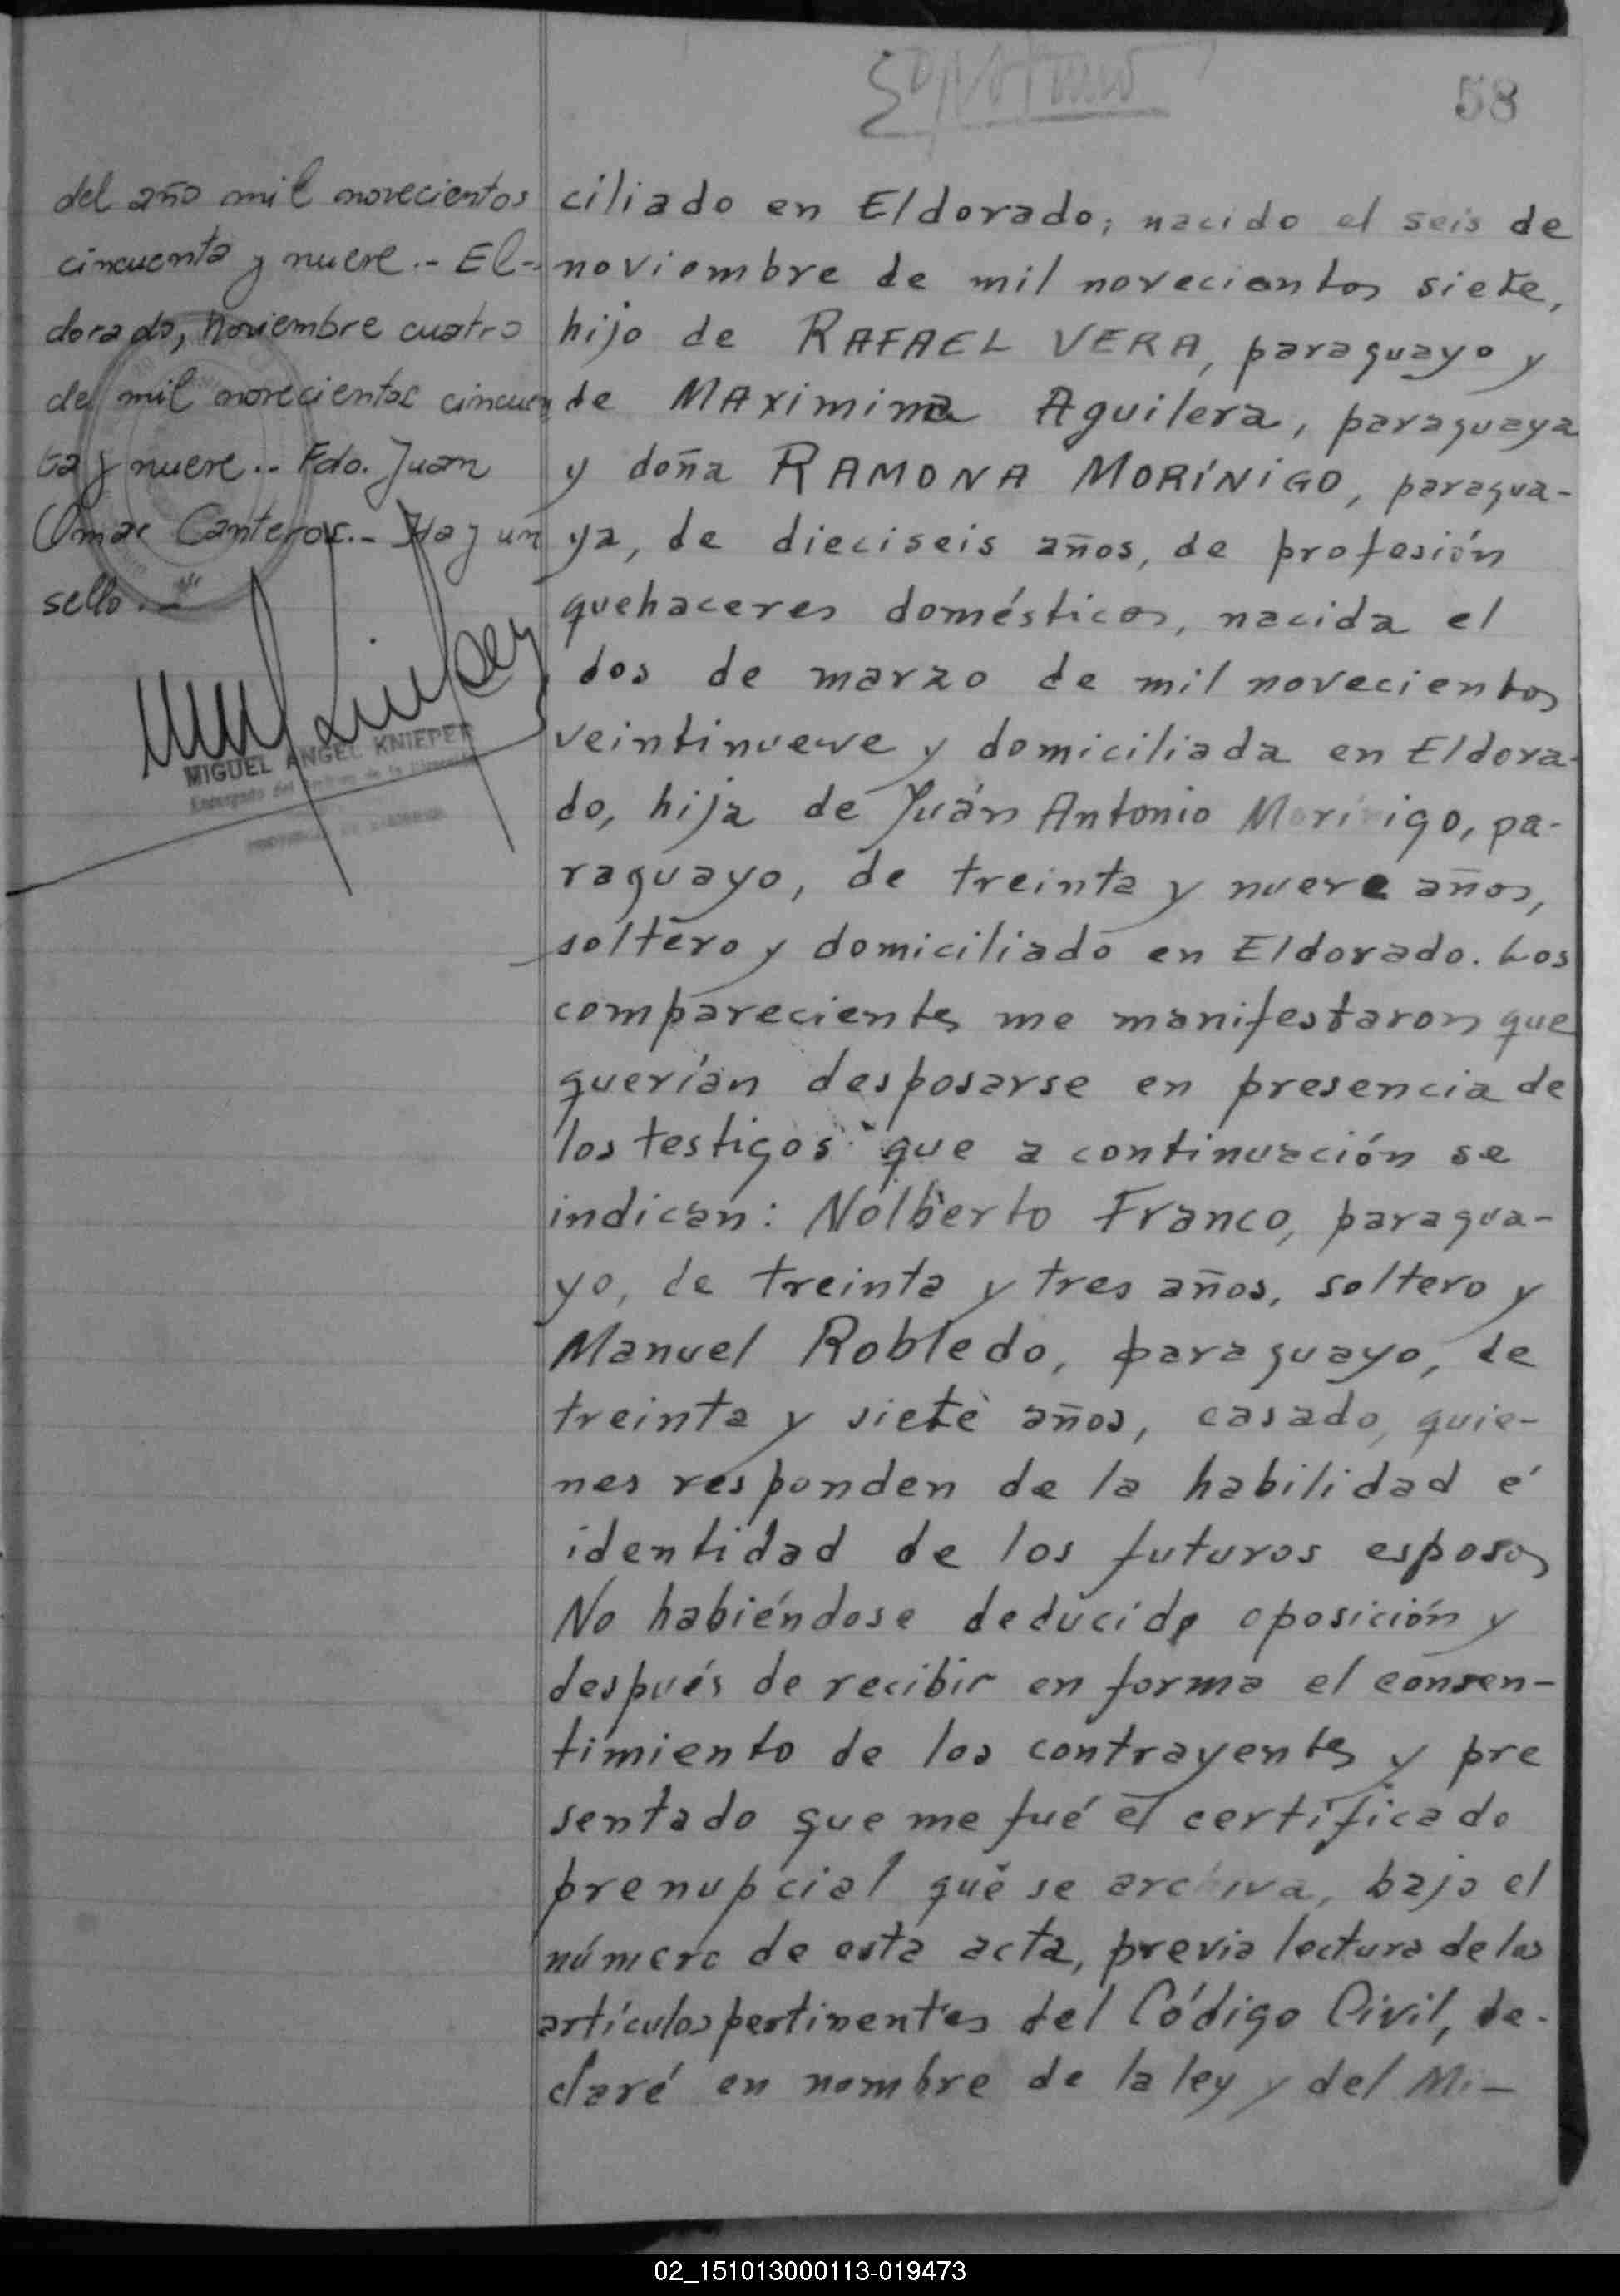 58
del año mil novecientos
cincuenta y nueve.- El-
dorado, Noviembre cuatro
de mil novecientos cincuen
ta y nueve.- Fdo. Juan
Omar Canteros.- Hay un
sello.-
MIGUEL ANGEL KNIEPER
ciliado en Eldorado; nacido el seis de
noviembre de mil novecientos siete,
hijo de RAFAEL VERA, paraguayo y
de MAXIMINA Aguilera, paraguaya
y doña RAMONA MORÍNIGO, paragua-
ya, de dieciseis años, de profesión
quehaceres domésticos, nacida el
dos de marzo de mil novecientos
veintinueve y domiciliada en Eldora-
do, hija de Juán Antonio Morínigo, pa-
raguayo, de treinta y nueve años,
soltero y domiciliado en Eldorado. Los
comparecientes me manifestaron que
querían desposarse en presencia de
los testigos que a continuación se
indican: Nolberto Franco, paragua-
yo, de treinta y tres años, soltero y
Manuel Robledo, paraguayo, de
treinta y siete años, casado, quie-
nes responden de la habilidad é
identidad de los futuros esposos
No habiéndose deducido oposición y
después de recibir en forma el consen-
timiento de los contrayentes y pre
sentado que me fué el certificado
prenupcial que se archiva, bajo el
número de esta acta, previa lectura de los
artículos pertinentes del Código Civil, de-
claré en nombre de la ley y del Mi-
02_151013000113-019473